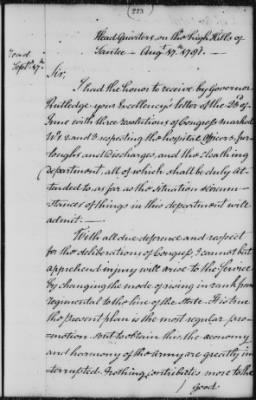 223
Head Quarters on the high Hills of
Santee – Augt. 17th. 1781. –
read
Septr. 17th
Sir,
I had the honor to receive by Governor
Rutledge your Excellency's letter of the 23d. of
June with three resolutions of Congress marked
No. 1 2 and 3 respecting the hospital Officers fur-
loughs and Discharges, and the Cloathing
Department, all of which shall be duly at-
tended to as far as the situation & circum-
stances of things in this department will
admit. —
With all due deference and respect
for the deliberations of Congress, I cannot but
apprehend injury will arise to the Service
by changing the mode of rising in rank from
regimental to the line of the State. It is true
the present plan is the most regular pro-
motion but to obtain this the economy
and harmony of the Army are greatly in-
terrupted. Nothing contributes more to the
good